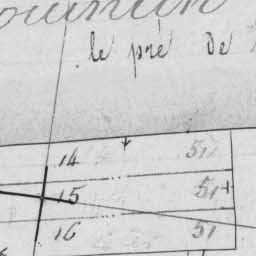 le pré de
14 51
15 51
16 51